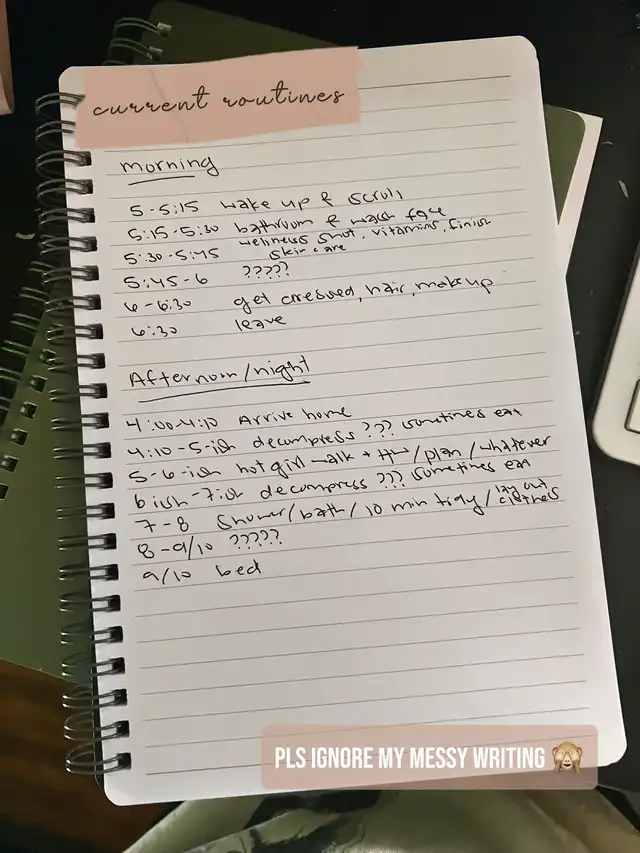 current routines
morning
5-5:15 wake up & scroll
5:15-5:30 bathroom & wash face
5:30-5:45 wellness shot, vitamins, finish
skincare
5:45-6 ?????
6-6:30 get dressed, hair, makeup
6:30 leave
Afternoon/night
4:00-4:10 Arrive home
4:10-5-ish decompress ??? sometimes eat
5-6-ish hot girl walk + /plan/whatever
6ish-7ish decompress ??? sometimes eat
7-8 Shower/bath/10 min tidy/lay out
clothes
8-9/10 ?????
9/10 bed
PLS IGNORE MY MESSY WRITING 🙈